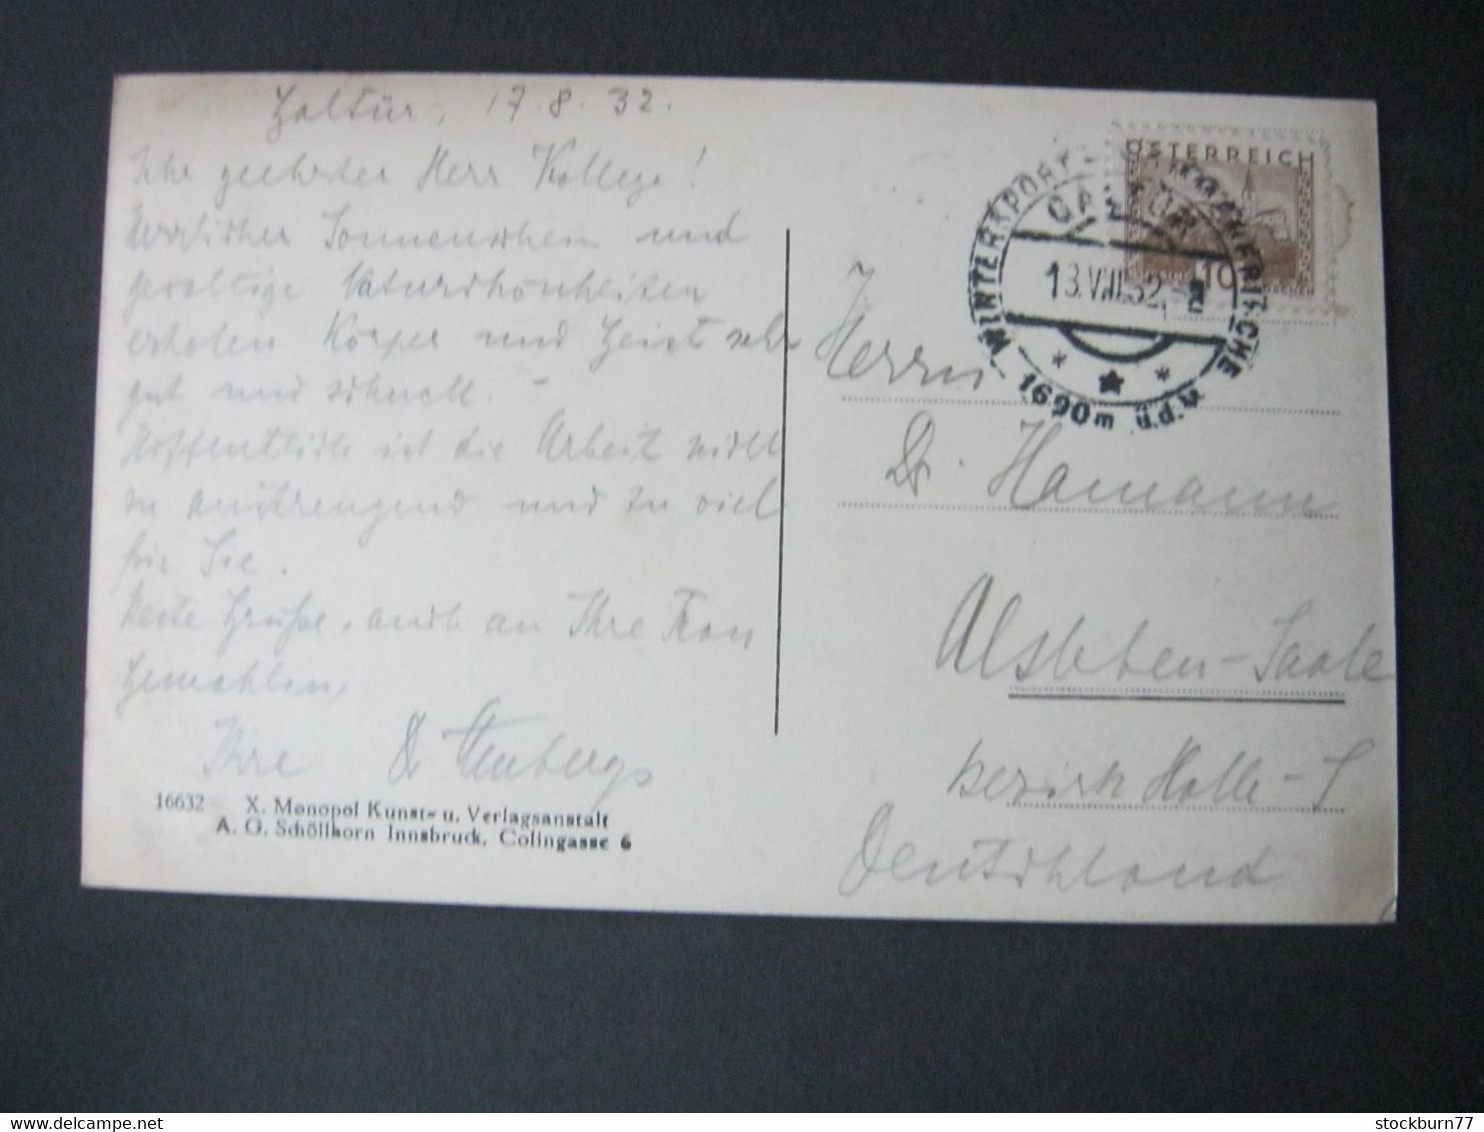 Galtür, 17.8.32.
Sehr geehrter Herr Kollege!
Herrlicher Sonnenschein und
gewaltige Naturschönheiten
erholen Körper und Geist sehr
gut und schnell. -
Hoffentlich ist die Arbeit nicht
zu anstrengend und zu viel
für Sie.
Beste Grüße, auch an Ihre Frau
Gemahlin,
Ihre Dr
16632 X. Monopol Kunst- u. Verlagsanstalt
A. G. Schöllhorn Innsbruck, Colingasse 6
ÖSTERREICH
10
WINTERSPORT
GALTÜR
SOMMERFRISCHE
13.VIII.32
* ★ *
1690m ü.d.M
Herrn
Dr. Hamann
Alsleben-Saale
Bezirk Halle-S
Deutschland
stockburn77